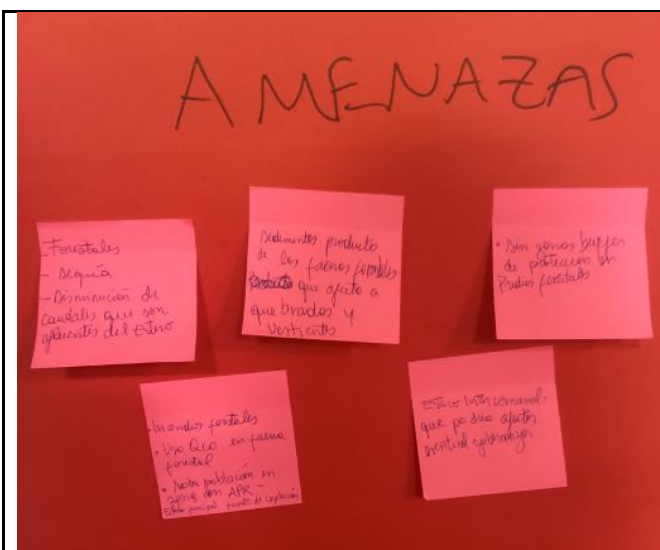 AMENAZAS
- Forestales
- Sequía
- Disminución de
caudales que son
afluentes del Estero
Sedimentos producto
de las faenas forestales
que afecta a
quebradas y
vertientes
• Sin zonas buffer
de protección en
Predios forestales
• Incendios forestales
• Uso Qco en faena
forestal
• Sobre población en
zona con APR -
Estero principal fuente de captación
Estero Intercomunal:
que podría afectar
eventual gobernanza